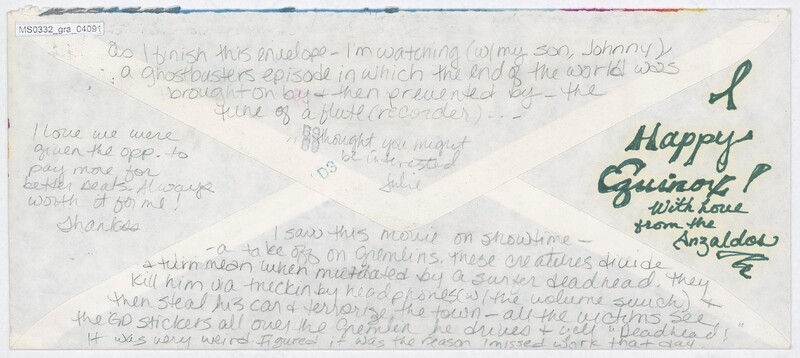 MS0332_gra_04091
as I finish this envelope - I'm watching (w/my son, Johnny),
a ghostbusters episode in which the end of the world was
brought on by & then prevented by - the
tune of a flute (recorder) ...
thought you might
be interested
Julie
D3
I love we were
given the opp. to
pay more for
better seats. Always
worth it for me!
Thanks
Happy
Equinox!
With Love
from the
Anzaldos
I saw this movie on showtime -
- a take off on Gremlins. these creatures divide
& turn mean when mutated by a surfer deadhead. they
kill him via truckin by headphones (w/ the volume) &
then steal his car & terrorize the town - all the victims see
the GD stickers all over the Gremlin he drives & yell "Deadheads!"
It was very weird. Figured it was the reason I missed work that day